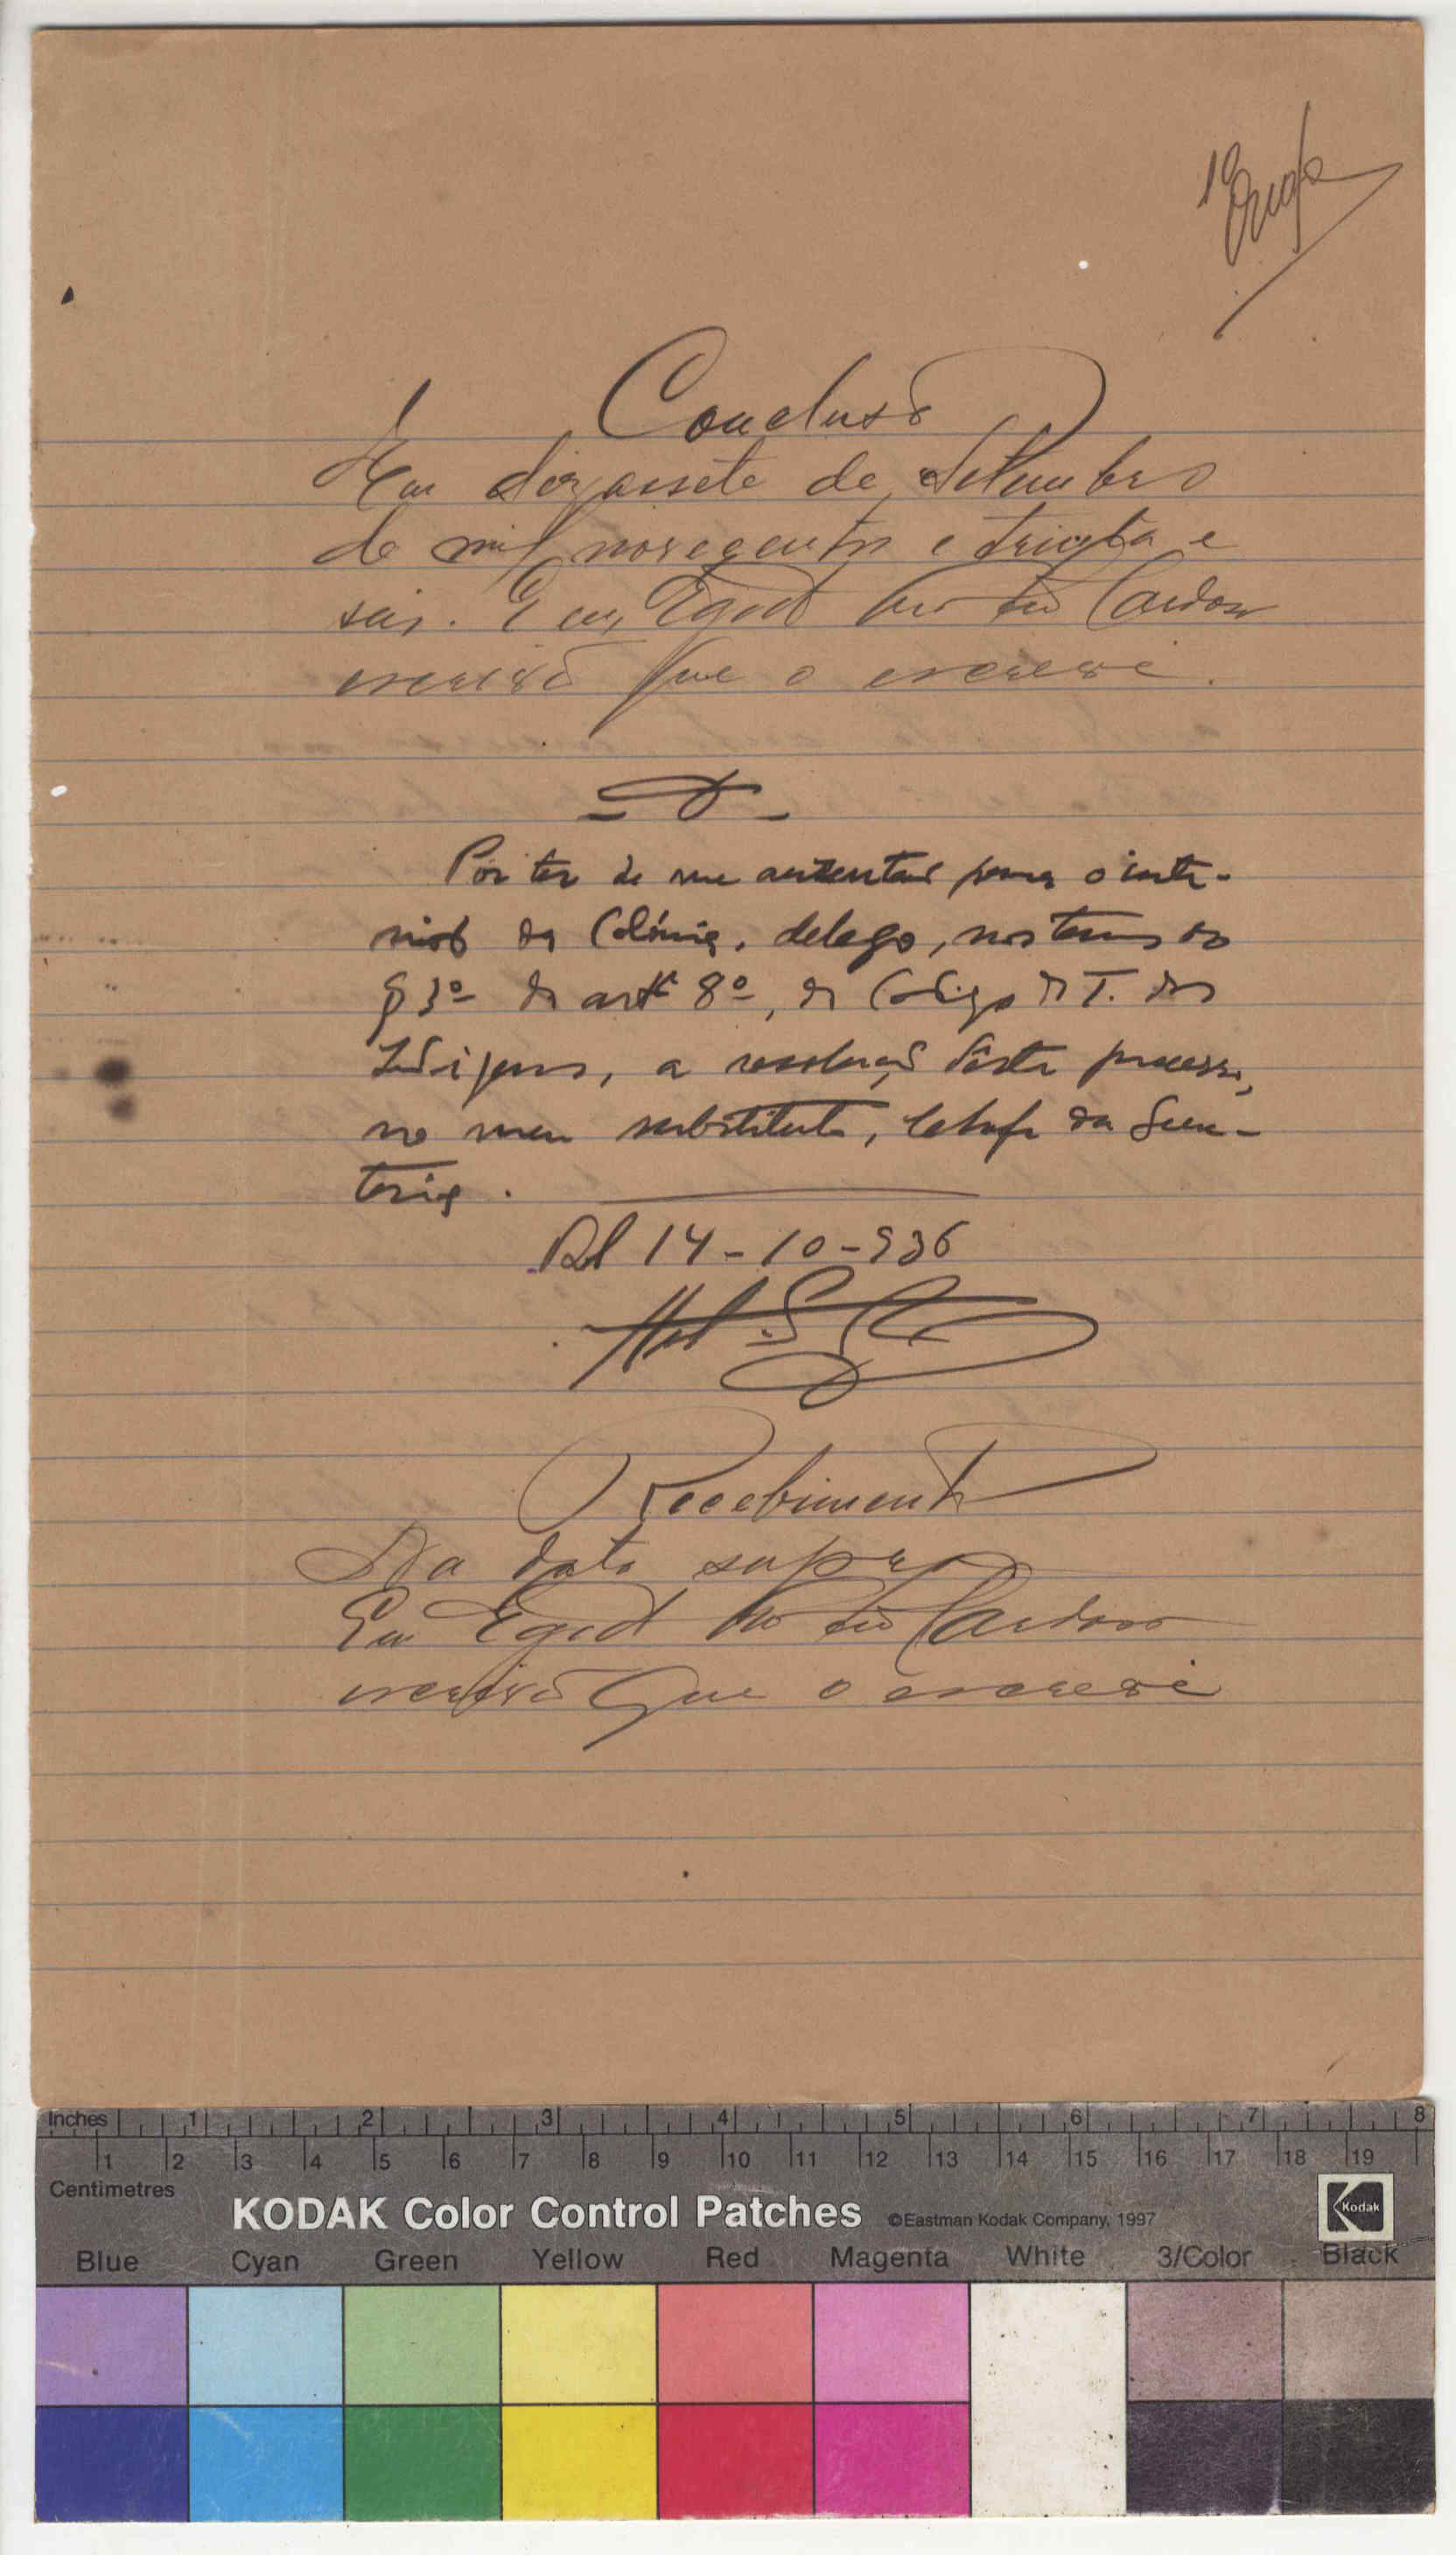 Conclusão
Em dezassete de Setembro
de mil novecentos e trinta e
seis. E eu, Cardoso
escrivão que o escrevi.
Por ter de me ausentar para o inte-
rior da Colónia, delego, nos termos do
§ 3º do artº 8º, do Codigo do T. dos
Indigenas, a resolução dêste processo,
no meu substituto, chefe da Secre-
taria.
14-10-936
Recebimento
Na data supra
Eu Cardoso
escrivão que o escrevi
Inches 1 2 3 4 5 6 7 8
1 2 3 4 5 6 7 8 9 10 11 12 13 14 15 16 17 18 19
Centimetres
KODAK Color Control Patches ©Eastman Kodak Company, 1997 Kodak
Blue Cyan Green Yellow Red Magenta White 3/Color Black